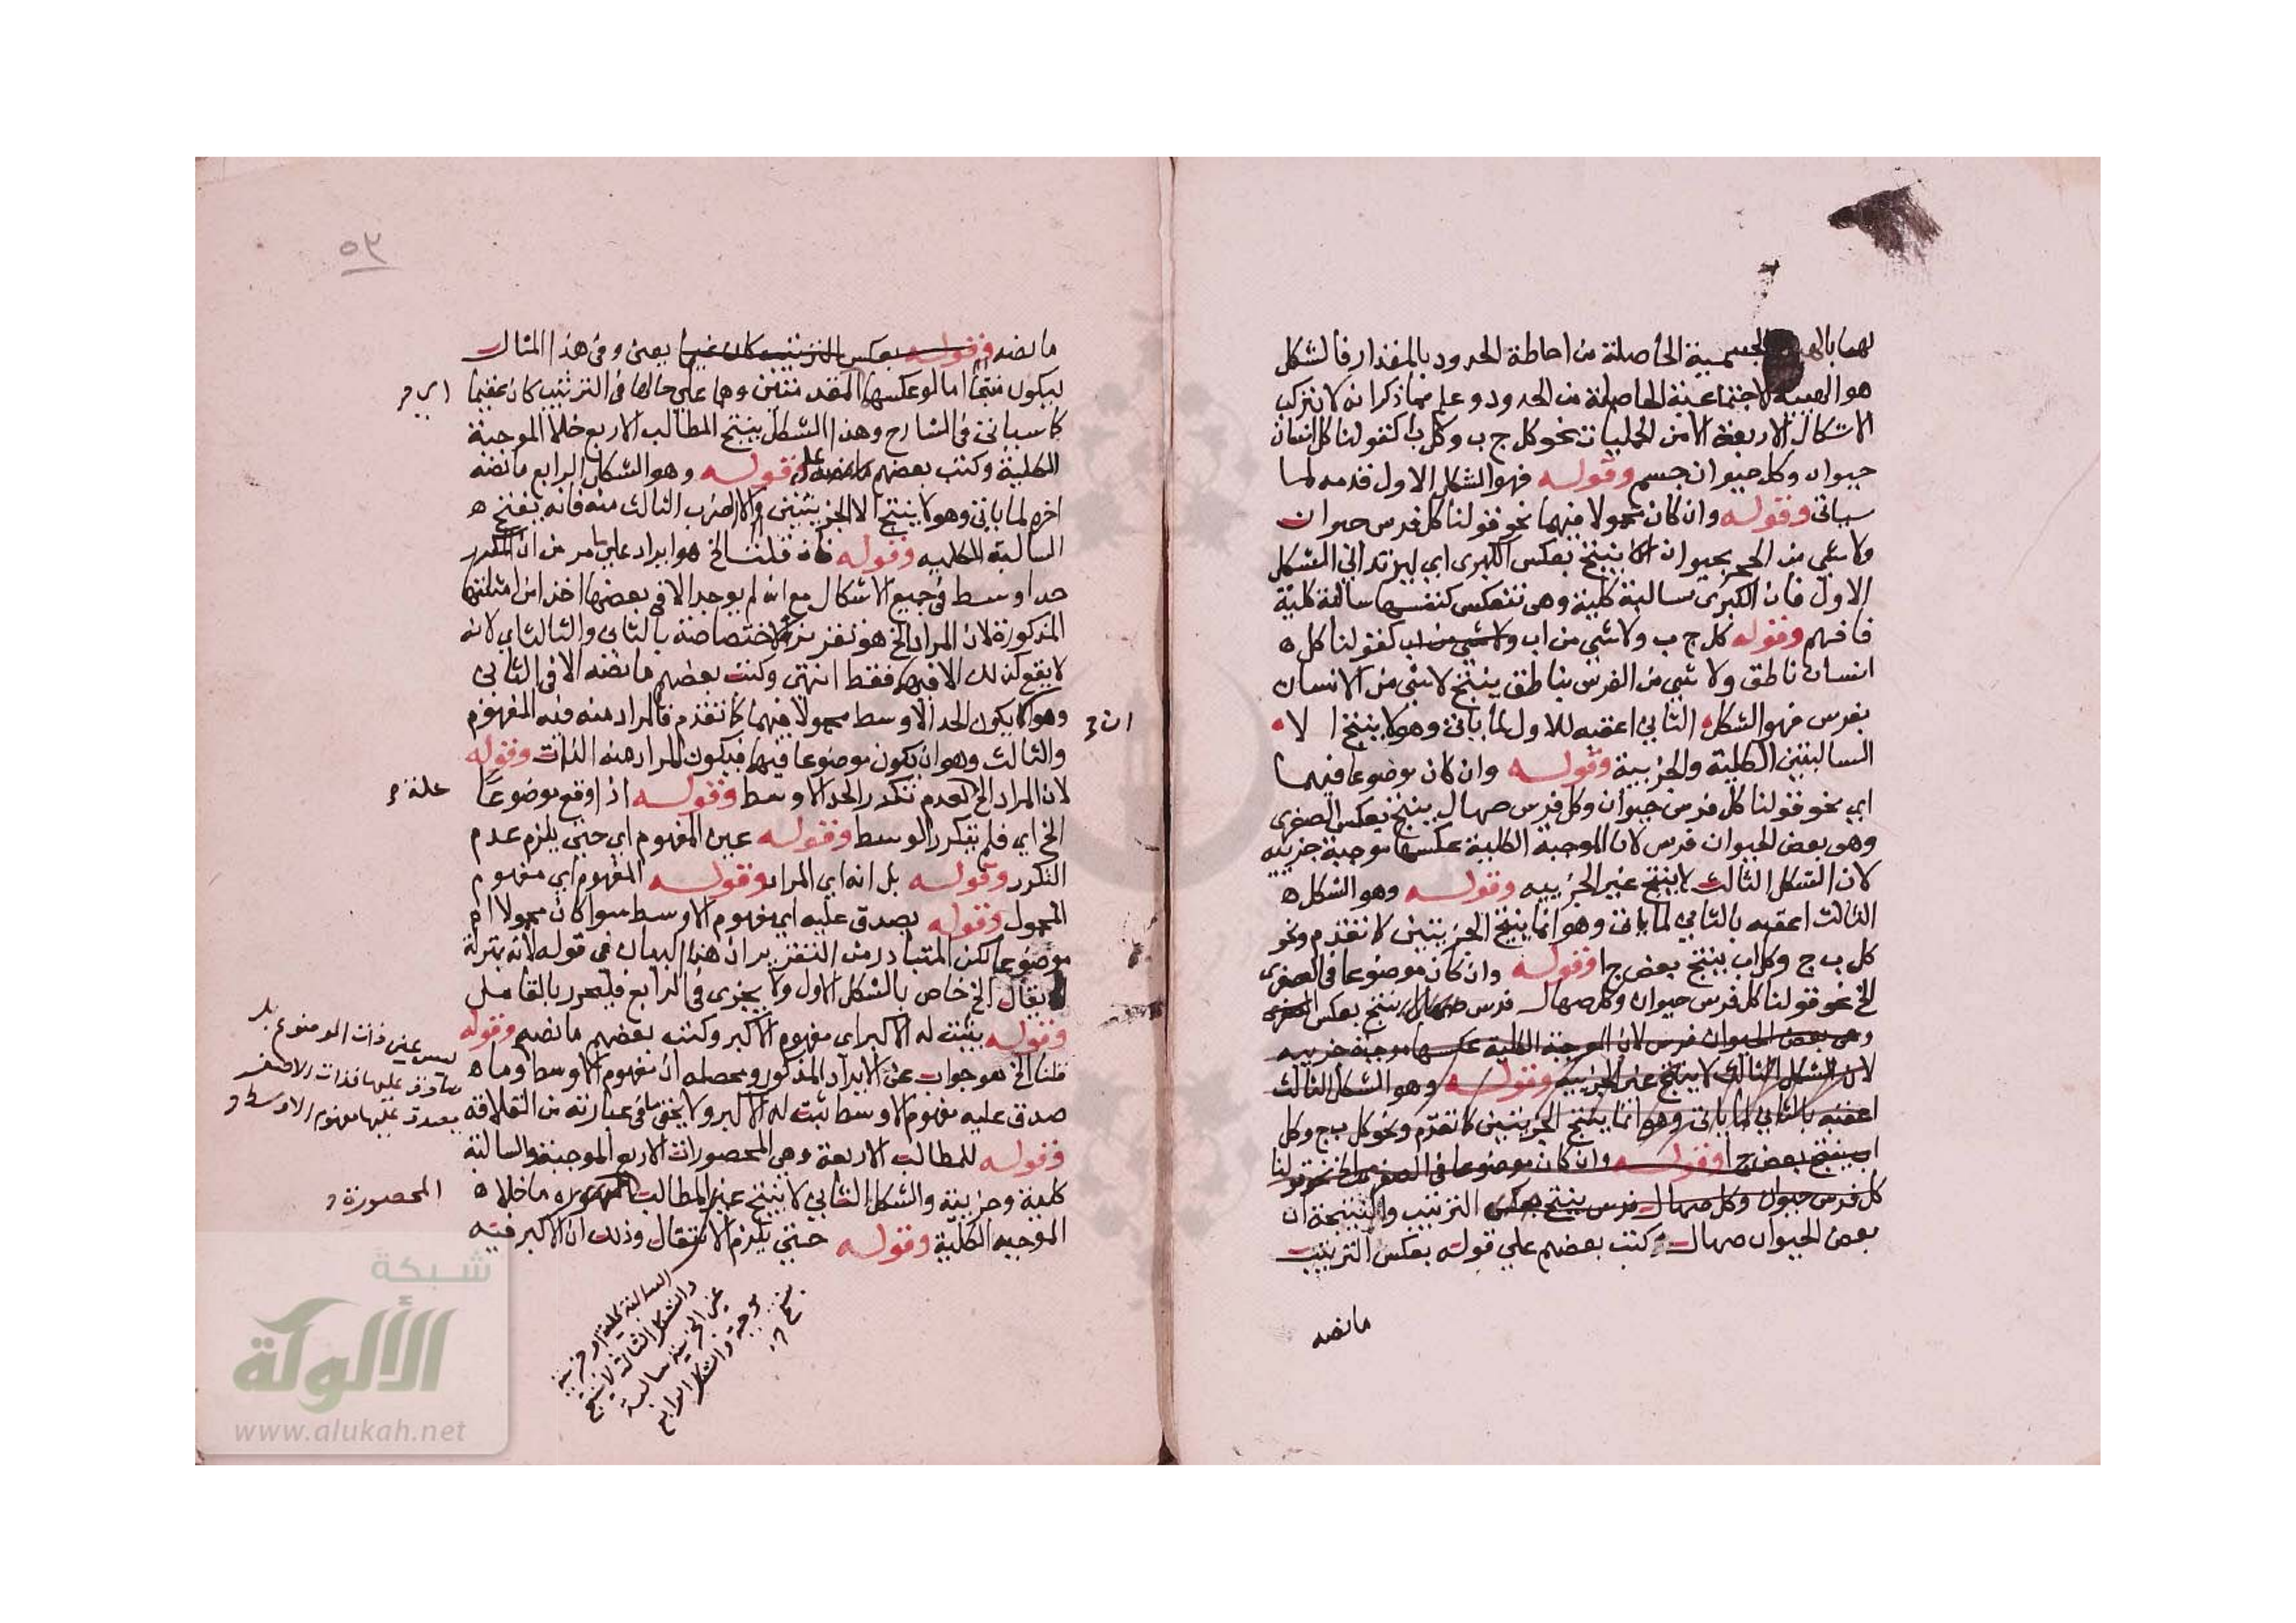 لهما بالهيئة الجسمية الحاصلة من احاطة الحدود بالمقدار فالشكل
هو الهيئة الاجتماعية الحاصلة من الحدود وعلم مما ذكر انه لا يتركب
الاشكال الاربعة الا من الحمليات نحو كل ج ب وكل ب ا كقولنا كل انسان
حيوان وكل حيوان جسم وقوله فهو الشكل الاول قدمه لما
سياتي وقوله وان كان محمولا فيهما نحو قولنا كل فرس حيوان
ولا شي من الحجر بحيوان ينتج بعكس الكبرى اي ليرتد الي الشكل
الاول فان الكبرى سالبة كلية وهي تنعكس كنفسها سالبة كلية
فافهم وقوله كل ج ب ولا شي من اب ولا شي من اب كقولنا كل ه
انسان ناطق ولا شي من الفرس بناطق ينتج لا شي من الانسان
بفرس فهو الشكل الثاني اعقبه للاول لما ياتي وهو لا ينتج الا
السالبتين الكلية والجزيية وقوله وان كان موضوعا فيهما
اي نحو قولنا كل فرس حيوان وكل فرس صهال ينتج بعكس الصغرى
وهي بعض الحيوان فرس لان الموجبة الكلية عكسها موجبة جزييه
لان الشكل الثالث لا ينتج غير الجزييه وقوله وهو الشكل ه
الثالث اعقبه بالثاني لما ياتي وهو انما ينتج الجزييتين كما تقدم ونحو
كل ب ج وكل ا ب ينتج بعض ج ا وقوله وان كان موضوعا في الصغرى
الخ نحو قولنا كل فرس حيوان وكل صهال فرس صهال ينتج بعكس الصغرى
وهي بعض الحيوان فرس لان الموجبة الكلية عكسها موجبة جزييه
لان الشكل الثالث لا ينتج غير الجزييه وقوله وهو الشكل الثالث
اعقبه بالثاني لما ياتي وهو انما ينتج الجزييتين كما تقدم ونحو كل ب ج وكل
ا ب ينتج بعض ج ا وقوله وان كان موضوعا في الصغرى الخ نحو قولنا
كل فرس حيوان وكل صهال فرس ينتج بعكس الترتيب والنتيجة ان
بعض الحيوان صهال وكتب بعضهم علي قوله بعكس الترتيب
ما نصه
٥٣
ما نصه وقوله بعكس الترتيب كان عقيما يعني وفي هذا المثال
ليكون منتجا اما لو عكسها المقدمتين وهما علي حالها في الترتيب كان عقيما
كما سياتي في الشارح وهذا الشكل ينتج المطالب الاربع خلا الموجبة
الكلية وكتب بعضهم علي قوله وهو الشكل الرابع ما نصه
اخره لما ياتي وهو لا ينتج الا الجزييتين والا الضرب الثالث منه فانه ينتج ه
السالبة الكليه وقوله فان قلت الخ هو ايراد علي ما مر من ان المكرر
حد اوسط في جميع الاشكال مع انه لم يوجد الا في بعضها اخذا من امثلتها
المذكورة لان المراد الخ هو تقرير لاختصاصه بالثاني والثالث اي لانه
لا يقع كذلك الا فيهما فقط انتهي وكتب بعضهم ما نصه الا في الثاني
وهو ان يكون الحد الاوسط محمولا فيهما كما تقدم فالمراد منه فيه المفهوم
ان
والثالث وهو ان يكون موضوعا فيهما فيكون المراد منه الذات وقوله
لان المراد الخ لعدم تكرر الحد الاوسط وقوله اذا وقع موضوعا
علة
الخ اي فلم يتكرر الوسط وقوله عين المفهوم اي حتي يلزم عدم
التكرر وقوله بل انه اي المراد وقوله المفهوم اي مفهوم
المحمول وقوله يصدق عليه اي مفهوم الاوسط سوا كان محمولا ام
موضوعا لكن المتبادر من التقرير ان هذا البيان في قوله لانه بمنزلة
يقال الخ خاص بالشكل الاول ولا يجزى في الرابع فليحرر بالتامل
وقوله يثبت له الاكبر اي مفهوم الاكبر وكتب بعضهم ما نصه وقوله
قلنا الخ هو جواب عن الايراد المذكور ومحصله ان مفهوم الاوسط وما ه
ليس عين ذات الموضوع بل
صدق عليه مفهوم الاوسط ثبت له الاكبر ولا يخفي ما في عبارته من القلاقة
يصدق عليها مفهوم الاوسط
وقوله للمطالب الاربعة وهي المحصورات الاربع الموجبة والسالبة
كلية وجزيية والشكل الثاني لا ينتج غير المطالب ما خلا ه
المحصورة
الموجبه الكلية وقوله حتي يلزم الانتقال وذلك ان الاكبر فيه
السالبة كلية او جزيية
والشكل الثالث لا ينتج
غير الجزيية سالبة
موجبة والشكل الرابع
شبكة
الألوكة
www.alukah.net